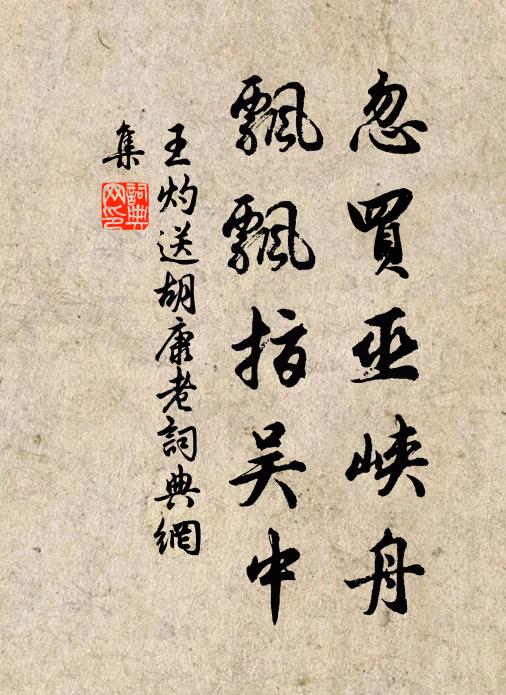 忽買巫峽舟
飄飄指吳中
王灼送胡康老詞典網
集
詞典
网印